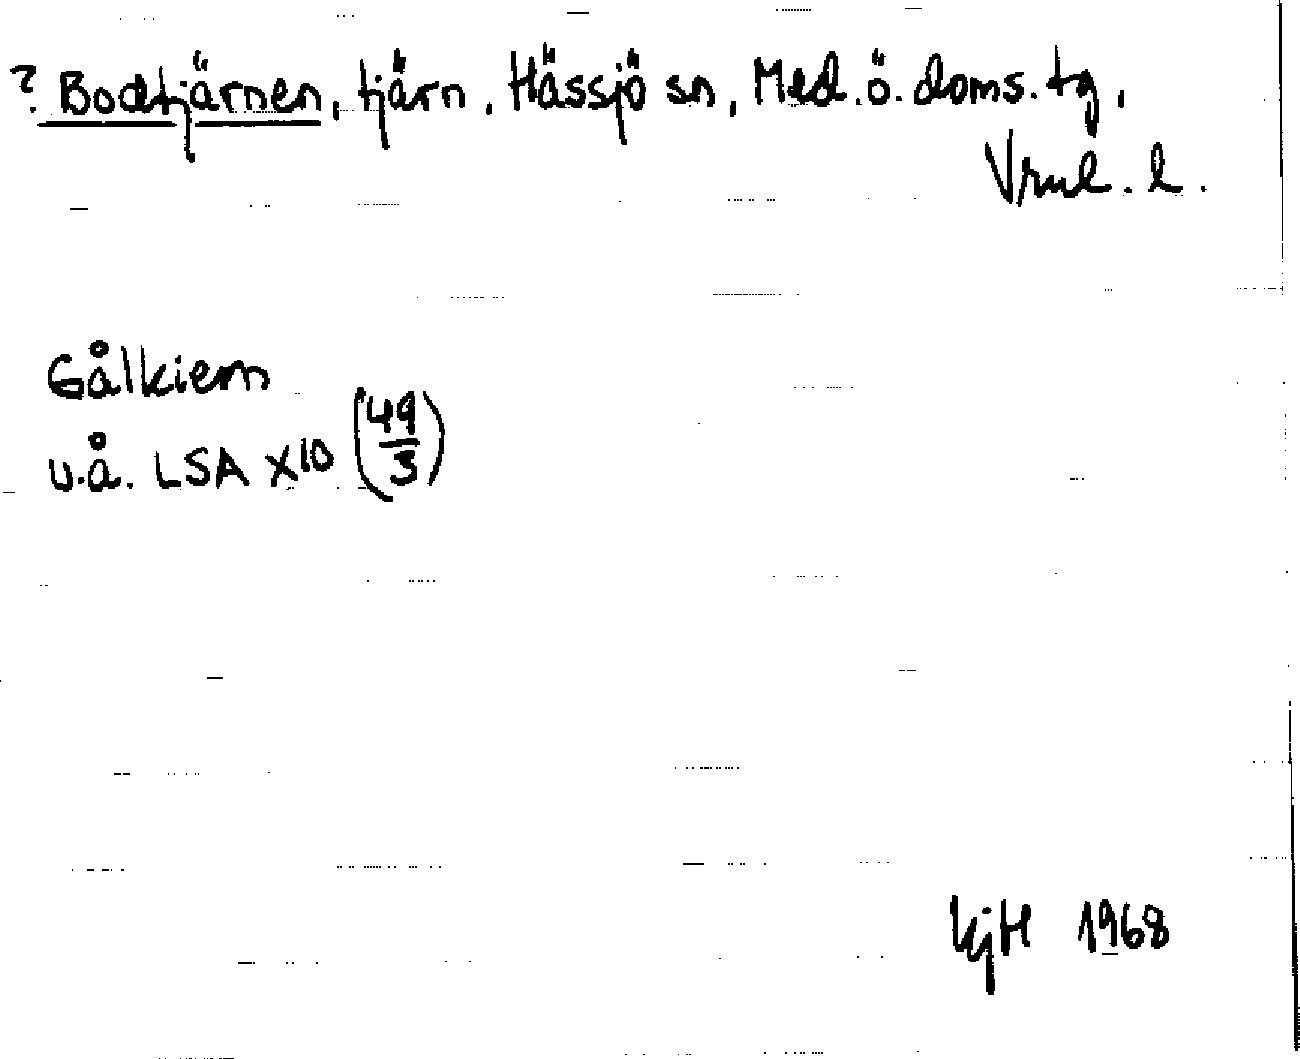 ? Bodtjärnen, tjärn, Hässjö sn, Med. ö. doms. tg,
Vrnl. l.
Gålkiern
u.å. LSA X10 (49/3)
KjH 1968